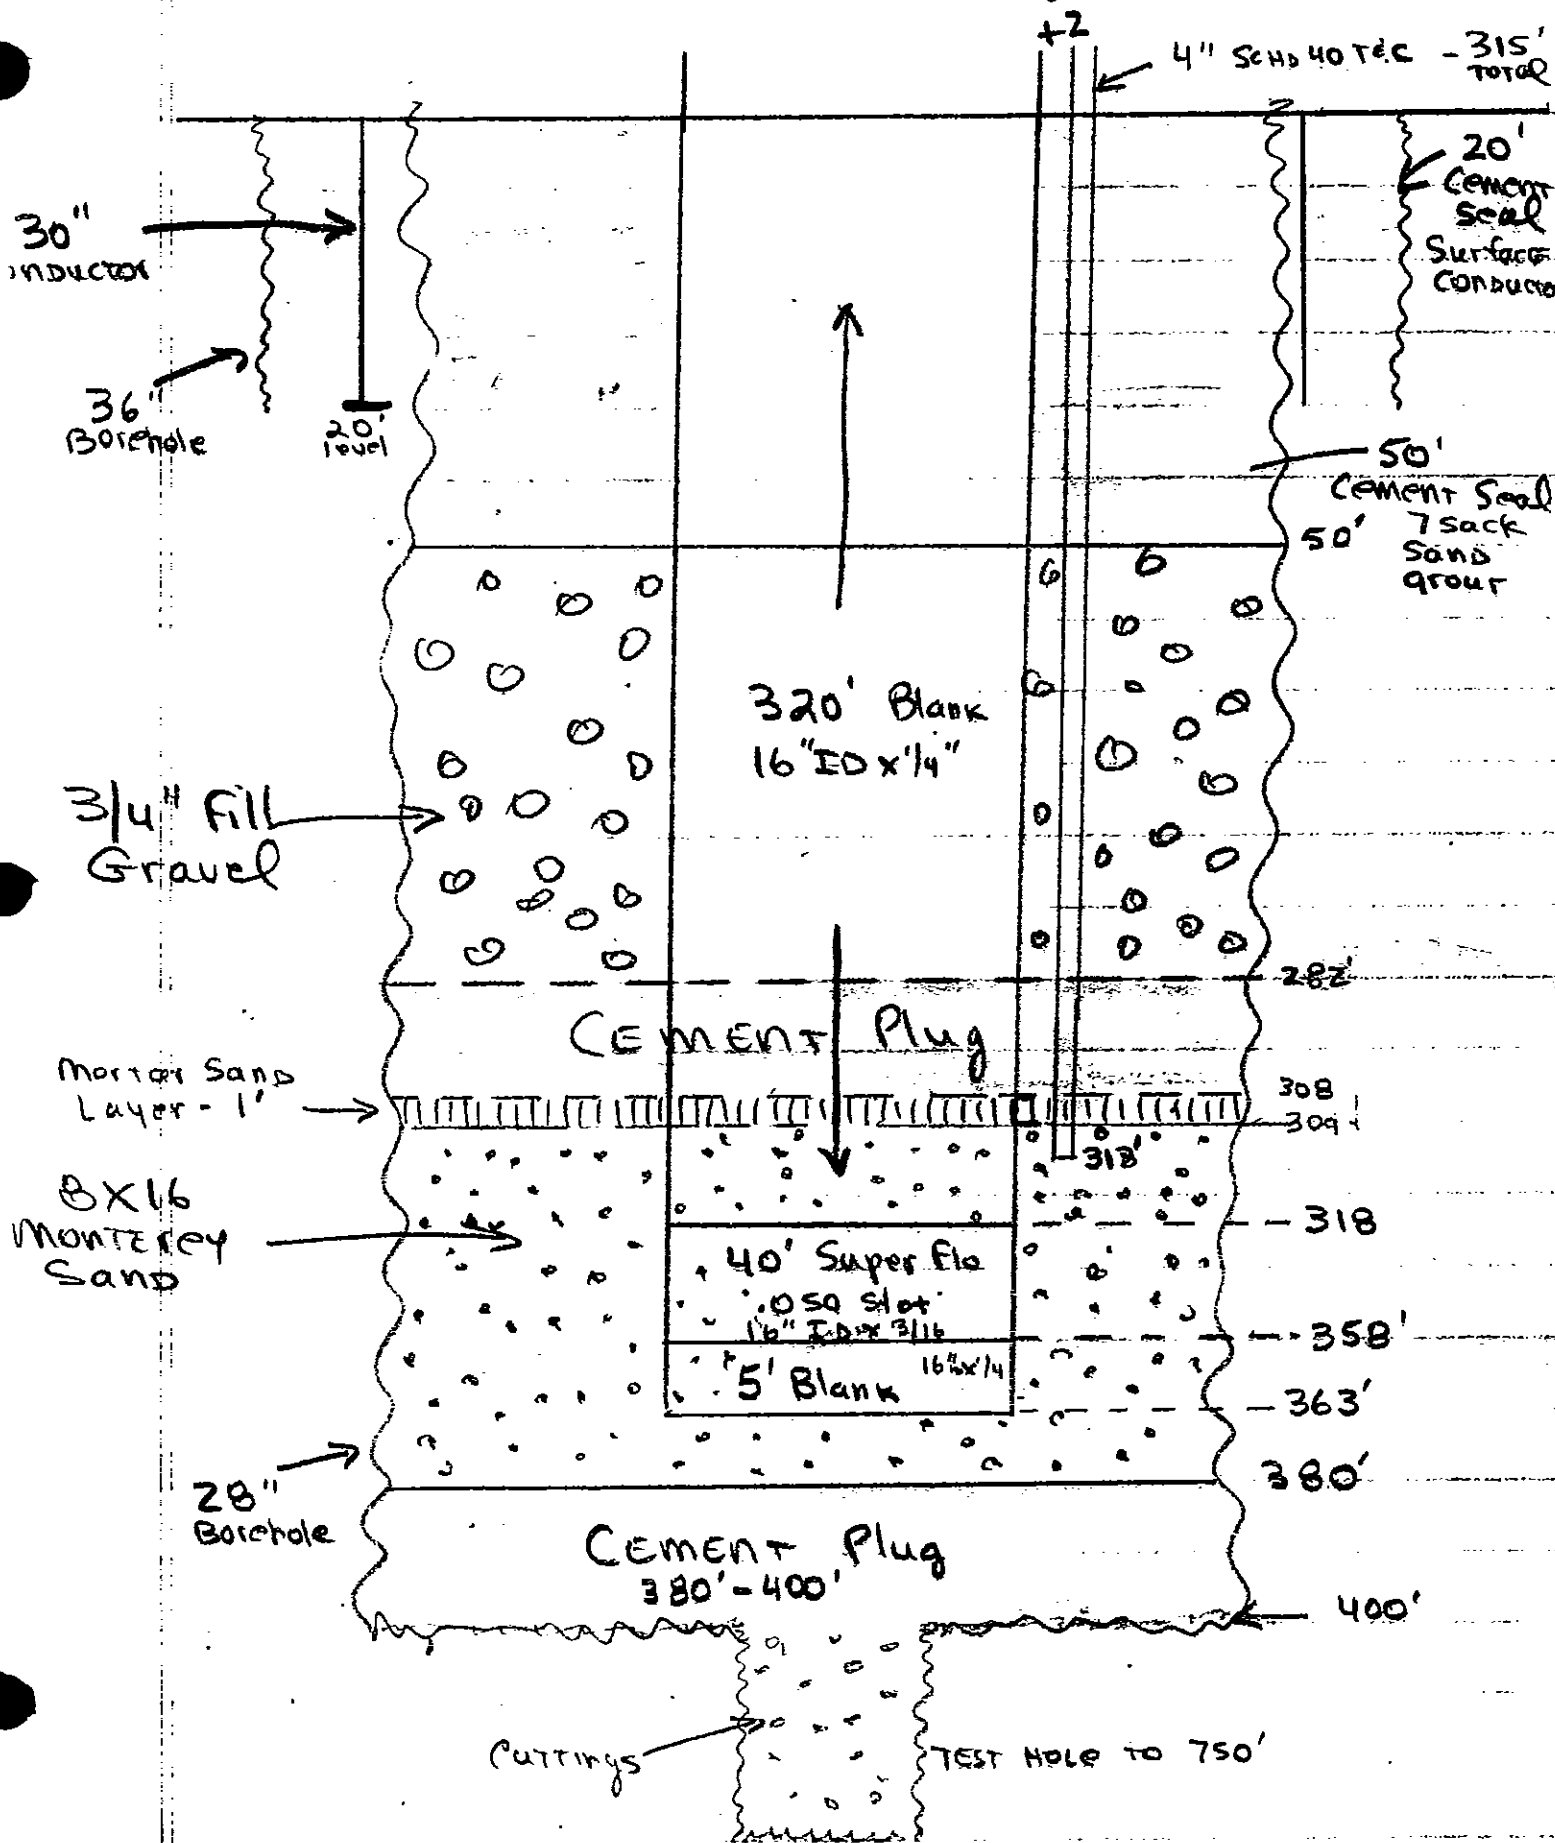 +2
4" SCHD 40 T&C - 315'
TOTAL
20'
Cement
Seal
Surface
Conducto
30"
nductor
36"
Borehole
20'
level
50'
Cement Seal
50'
7 sack
Sand
grout
320' Blank
16" ID x 1/4"
3/4" Fill
Gravel
282'
Cement Plug
Mortar Sand
Layer - 1'
308
309
8X16
Monterey
Sand
318
40' Super Flo
16" ID x 3/16
358'
5' Blank
16" x 1/4
363'
28"
Borehole
380'
Cement Plug
380'-400'
400'
Cuttings
TEST HOLE TO 750'